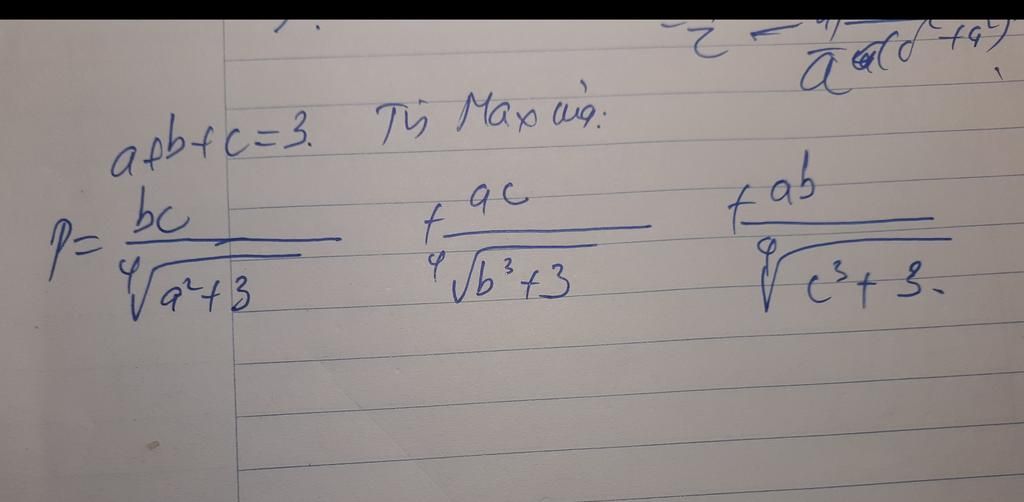 a+b+c=3. Tìm Max của:
P = bc/∜(a²+3) + ac/∜(b³+3) + ab/∜(c³+3).